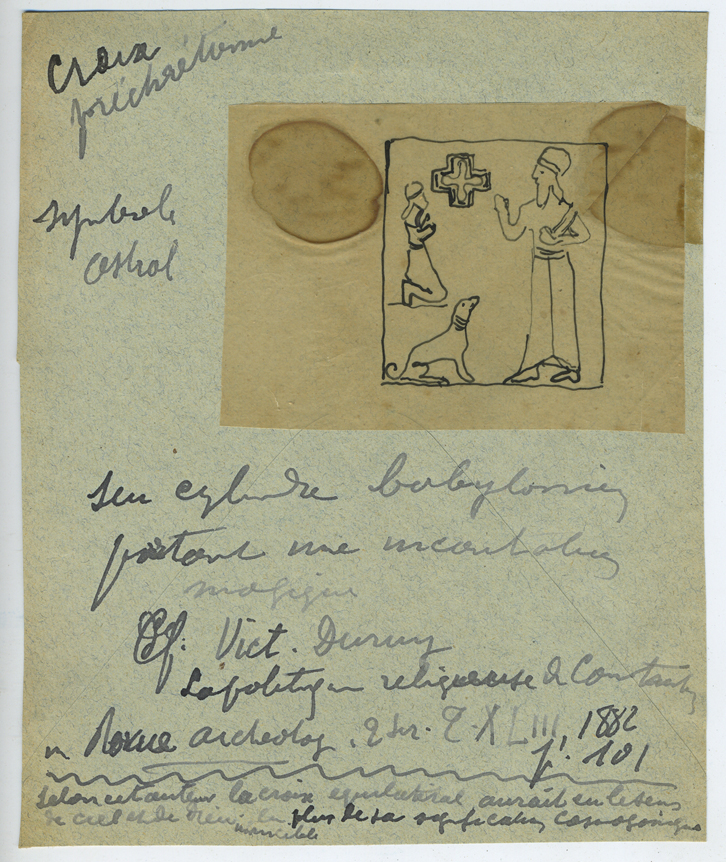 Croix
préchrétienne
symbole
astral
sur cylindre babylonien
portant une incantation
magique
Cf. Vict. Duruy
La politique religieuse de Constantin
in Revue archéolog., 2 sér. T. XLIII, 1882
p. 101
Selon cet auteur la croix équilatéral aurait eu le sens
de ciel et de Dieu en plus de sa signification cosmogonique
invincible